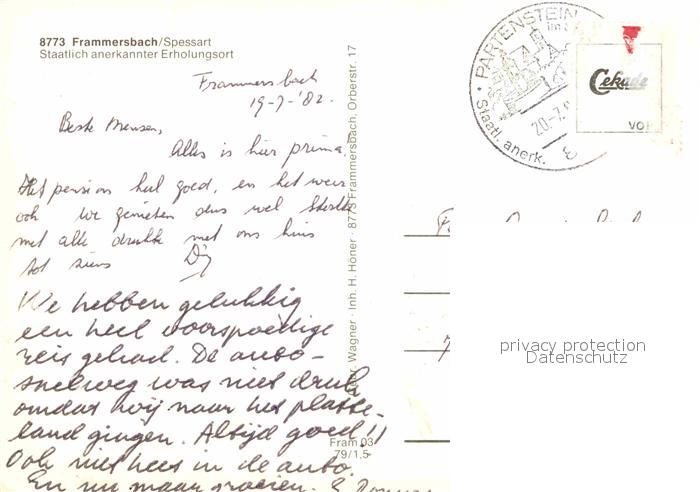 8773 Frammersbach/Spessart
Staatlich anerkannter Erholungsort
Frammersbach
19-7-'82.
Beste Mensen,
Alles is hier prima.
Het pension heel goed, en het weer
ook we genieten dus wel Sterkte
met alle drukte met ons huis
tot ziens
We hebben gelukkig
een heel voorspoedige
reis gehad. De auto-
snelweg was niet druk
omdat wij naar het platte-
land gingen. Altijd goed!!
Ook niet hees in de auto.
En nu maar
Wagner · Inh. H. Höner · 8773 Frammersbach, Orberstr. 17
Fram 03
79/1.5
PARTENSTEIN
im
Staatl. anerk.
20.-7.
8
Cekade
VO
privacy protection
Datenschutz